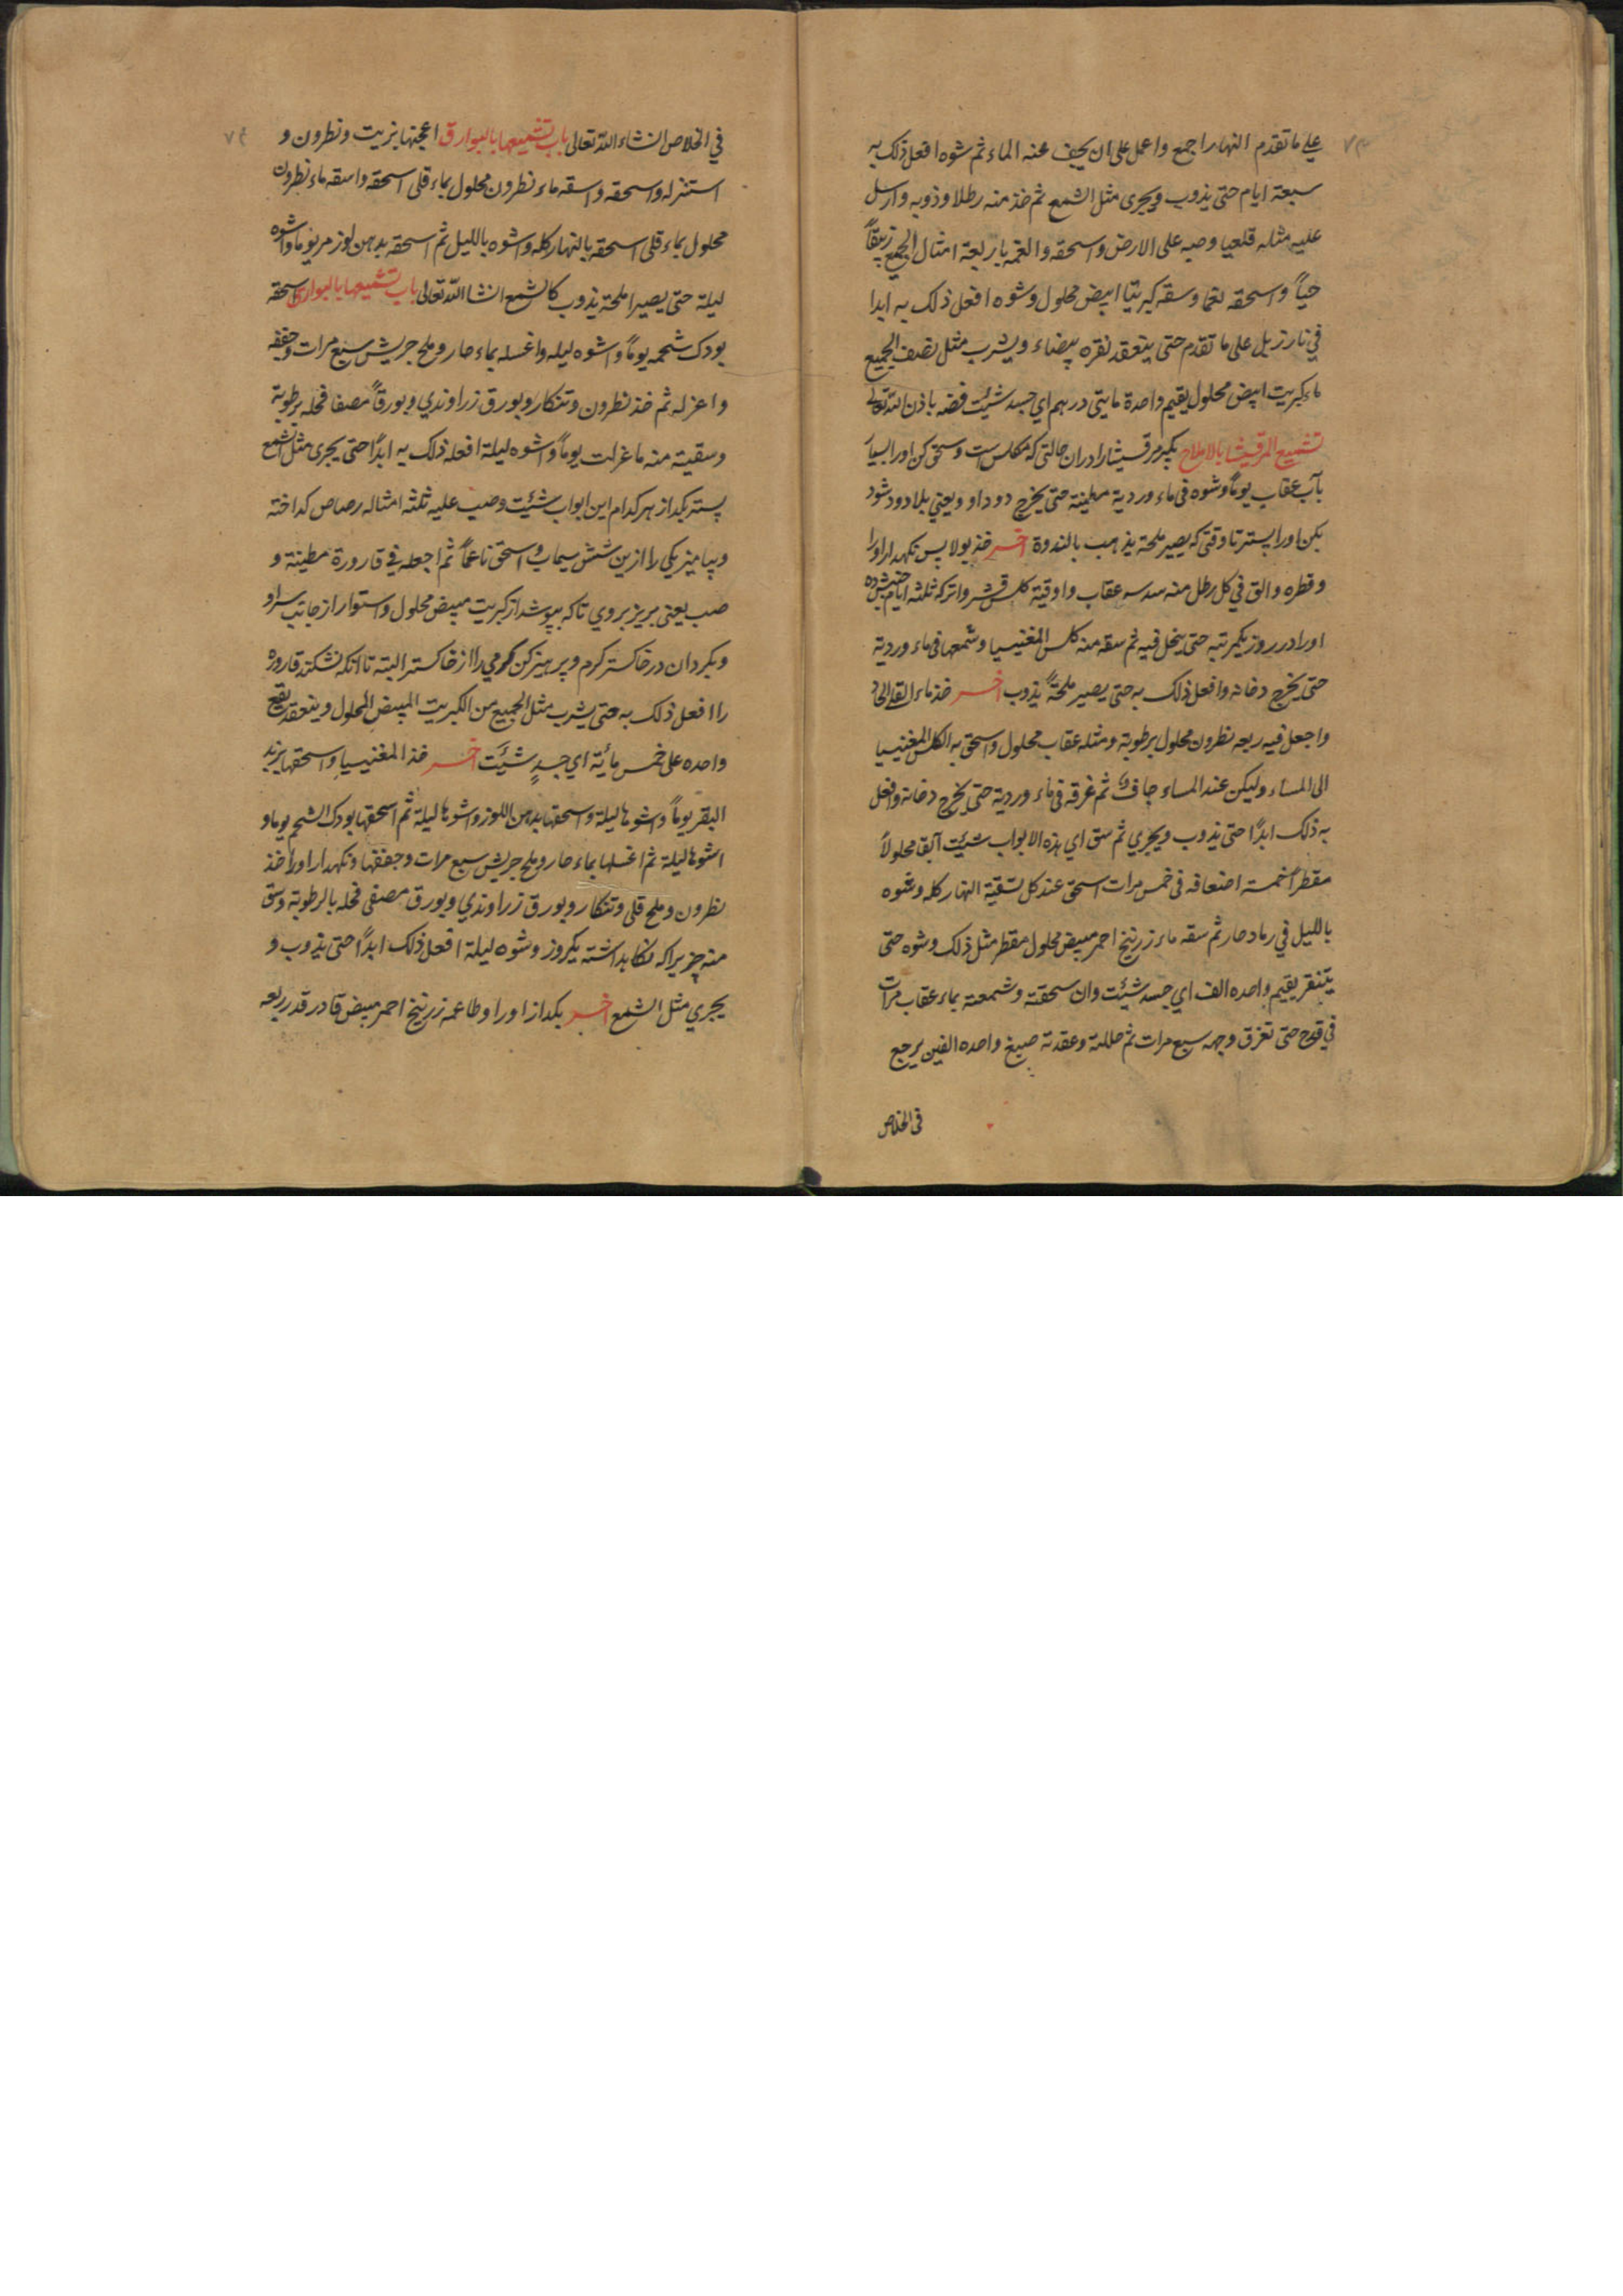 ٧٣
علی ما تقدم النهار اجمع واعمل علی ان یجف عنه الماء ثم شوه افعل ذلک به
سبعة ایام حتی یذوب ویجری مثل الشمع ثم خذ منه رطلا وذوبه وارسل
علیه مثله قلعیا وصبه علی الارض واسحقه والغمه باربعة امثال الجمیع زیبقاً
حیاً واسحقه نعما وسقه کبریتا ابیض محلول وشوه افعل ذلک به ابدا
فی نار زبل علی ما تقدم حتی ینعقد نقره بیضاء ویشرب مثل نصف الجمیع
ماء کبریت ابیض محلول یقیم واحدة مایتی درهم ای جسد شئت فضه باذن الله تعالی
تشمیع المرقیشا بالاملاح بکیر مرقشیشا را دران حالتی که مکلس است وسحق کن اورا بسیار
بآب عقاب یوماً وشوه فی ماء وردیة مطینة حتی یخرج دود او ویعنی بلا دود شود
بکن اورا پستر تا وقتی که یصیر ملحة یذهب بالندوة اخر خذ بولا پس نکهدار اورا
وقطره والق فی کل رطل منه سدسه عقاب واوقیة کلس قشر واترکه ثلثه ایام
اورا در روز یکمرتبه حتی ینحل فیه ثم سقه منه کلس المغنیسیا وشمعها فی ماء وردیة
حتی یخرج دخانه وافعل ذلک به حتی یصیر ملحةً یذوب اخر خذ ماء القلی الحاد
واجعل فیه ربعه نطرون محلول برطوبة ومثله عقاب محلول واسحق به الکلس المغنیسیا
الی المساء ولیکن عند المساء جاف ثم غرقه فی ماء وردیة حتی یخرج دخانه وافعل
به ذلک ابدًا حتی یذوب ویجری ثم سق ای هذه الابواب شیئت آبقا محلولاً
مقطراً خمسة اضعافه فی خمس مرات اسحق عند کل تسقیة النهار کله وشوه
باللیل فی رماد حار ثم سقه ماء زرنیخ احمر مبیض محلول مقطر مثل ذلک وشوه حتی
یتنقر یقیم واحده الف ای جسد شیئت وان سحقته وشمعته بماء عقاب مرات
فی قدح حتی تغرق وجهه سبع مرات ثم حللته وعقدته صبغ واحده الفین یرجع
فی الخلاص
فی الخلاص انشاء الله تعالی باب تشمیعها بالبوارق اعجنها بزیت ونطرون و
استنزله واسحقه واسقه ماء نطرون محلول بماء قلی اسحقه واسقه ماء نطرون
محلول بماء قلی اسحقه بالنهار کله واشوه باللیل ثم اسحقه بدهن لوز مر یوما واشوه
لیلة حتی یصیر املحة یذوب کالشمع انشا الله تعالی باب تشمیعها بالبوارق اسحقه
بودک شحمه یوماً واشوه لیله واغسله بماء حار وملح جریش سبع مرات وجففه
واعزله ثم خذ نطرون وتنکار وبورق زراوندی وبورقاً مصفا فحله برطوبة
وسقیته منه ما عزلت یوماً واشوه لیلة افعله ذلک به ابدًا حتی یجری مثل الشمع
پستر بکداز هر کدام این ابواب شئت وصب علیه ثلثه امثاله رصاص کداخته
وبیامیز یکی را ازین شش سیماب واسحق ناعماً ثم اجعله فی قارورة مطینة و
صب یعنی بریز بروی تا که بپوشد از کبریت مبیض محلول واستوار از جانب سر او
وبکردان در خاکستر کرم وپرهیز کن کرمی را از خاکستر البته تا انکه نشکند قاروره
را افعل ذلک به حتی یشرب مثل الجمیع من الکبریت المبیض المحلول وینعقد یقع
واحده علی خمس مائة ای جسدٍ شیئت اخر خذ المغنیسیا واسحقها بزبد
البقر یوماً واشوها لیلة واسحقها بدهن اللوز واشوها لیلة ثم اسحقها بودک الشحم یوما و
اشوها لیلة ثم اغسلها بماء حار وملح جریش سبع مرات وجففها ونکهدار اورا خذ
نطرون وملح قلی وتنکار وبورق زراوندی وبورق مصفی فحله بالرطوبة وسق
منه چیز یرا که نکاهداشته یکروز وشوه لیلة افعل ذلک ابدًا حتی یذوب و
یجری مثل الشمع اخر بکداز اورا وطاعمه زرنیخ احمر مبیض قادر قدر ربعه